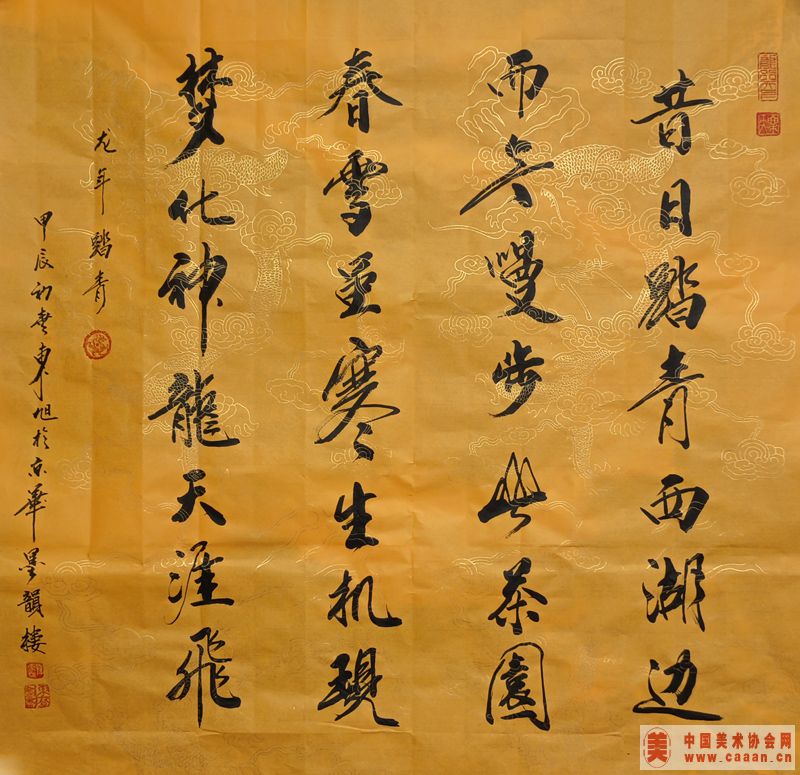 昔日踏青西湖边
而今漫步茶園
春雪虽寒生机現
梦化神龍天涯飛
龙年踏青
甲辰初春東旭於京華墨韻楼
中国美术协会网
www.caaan.cn